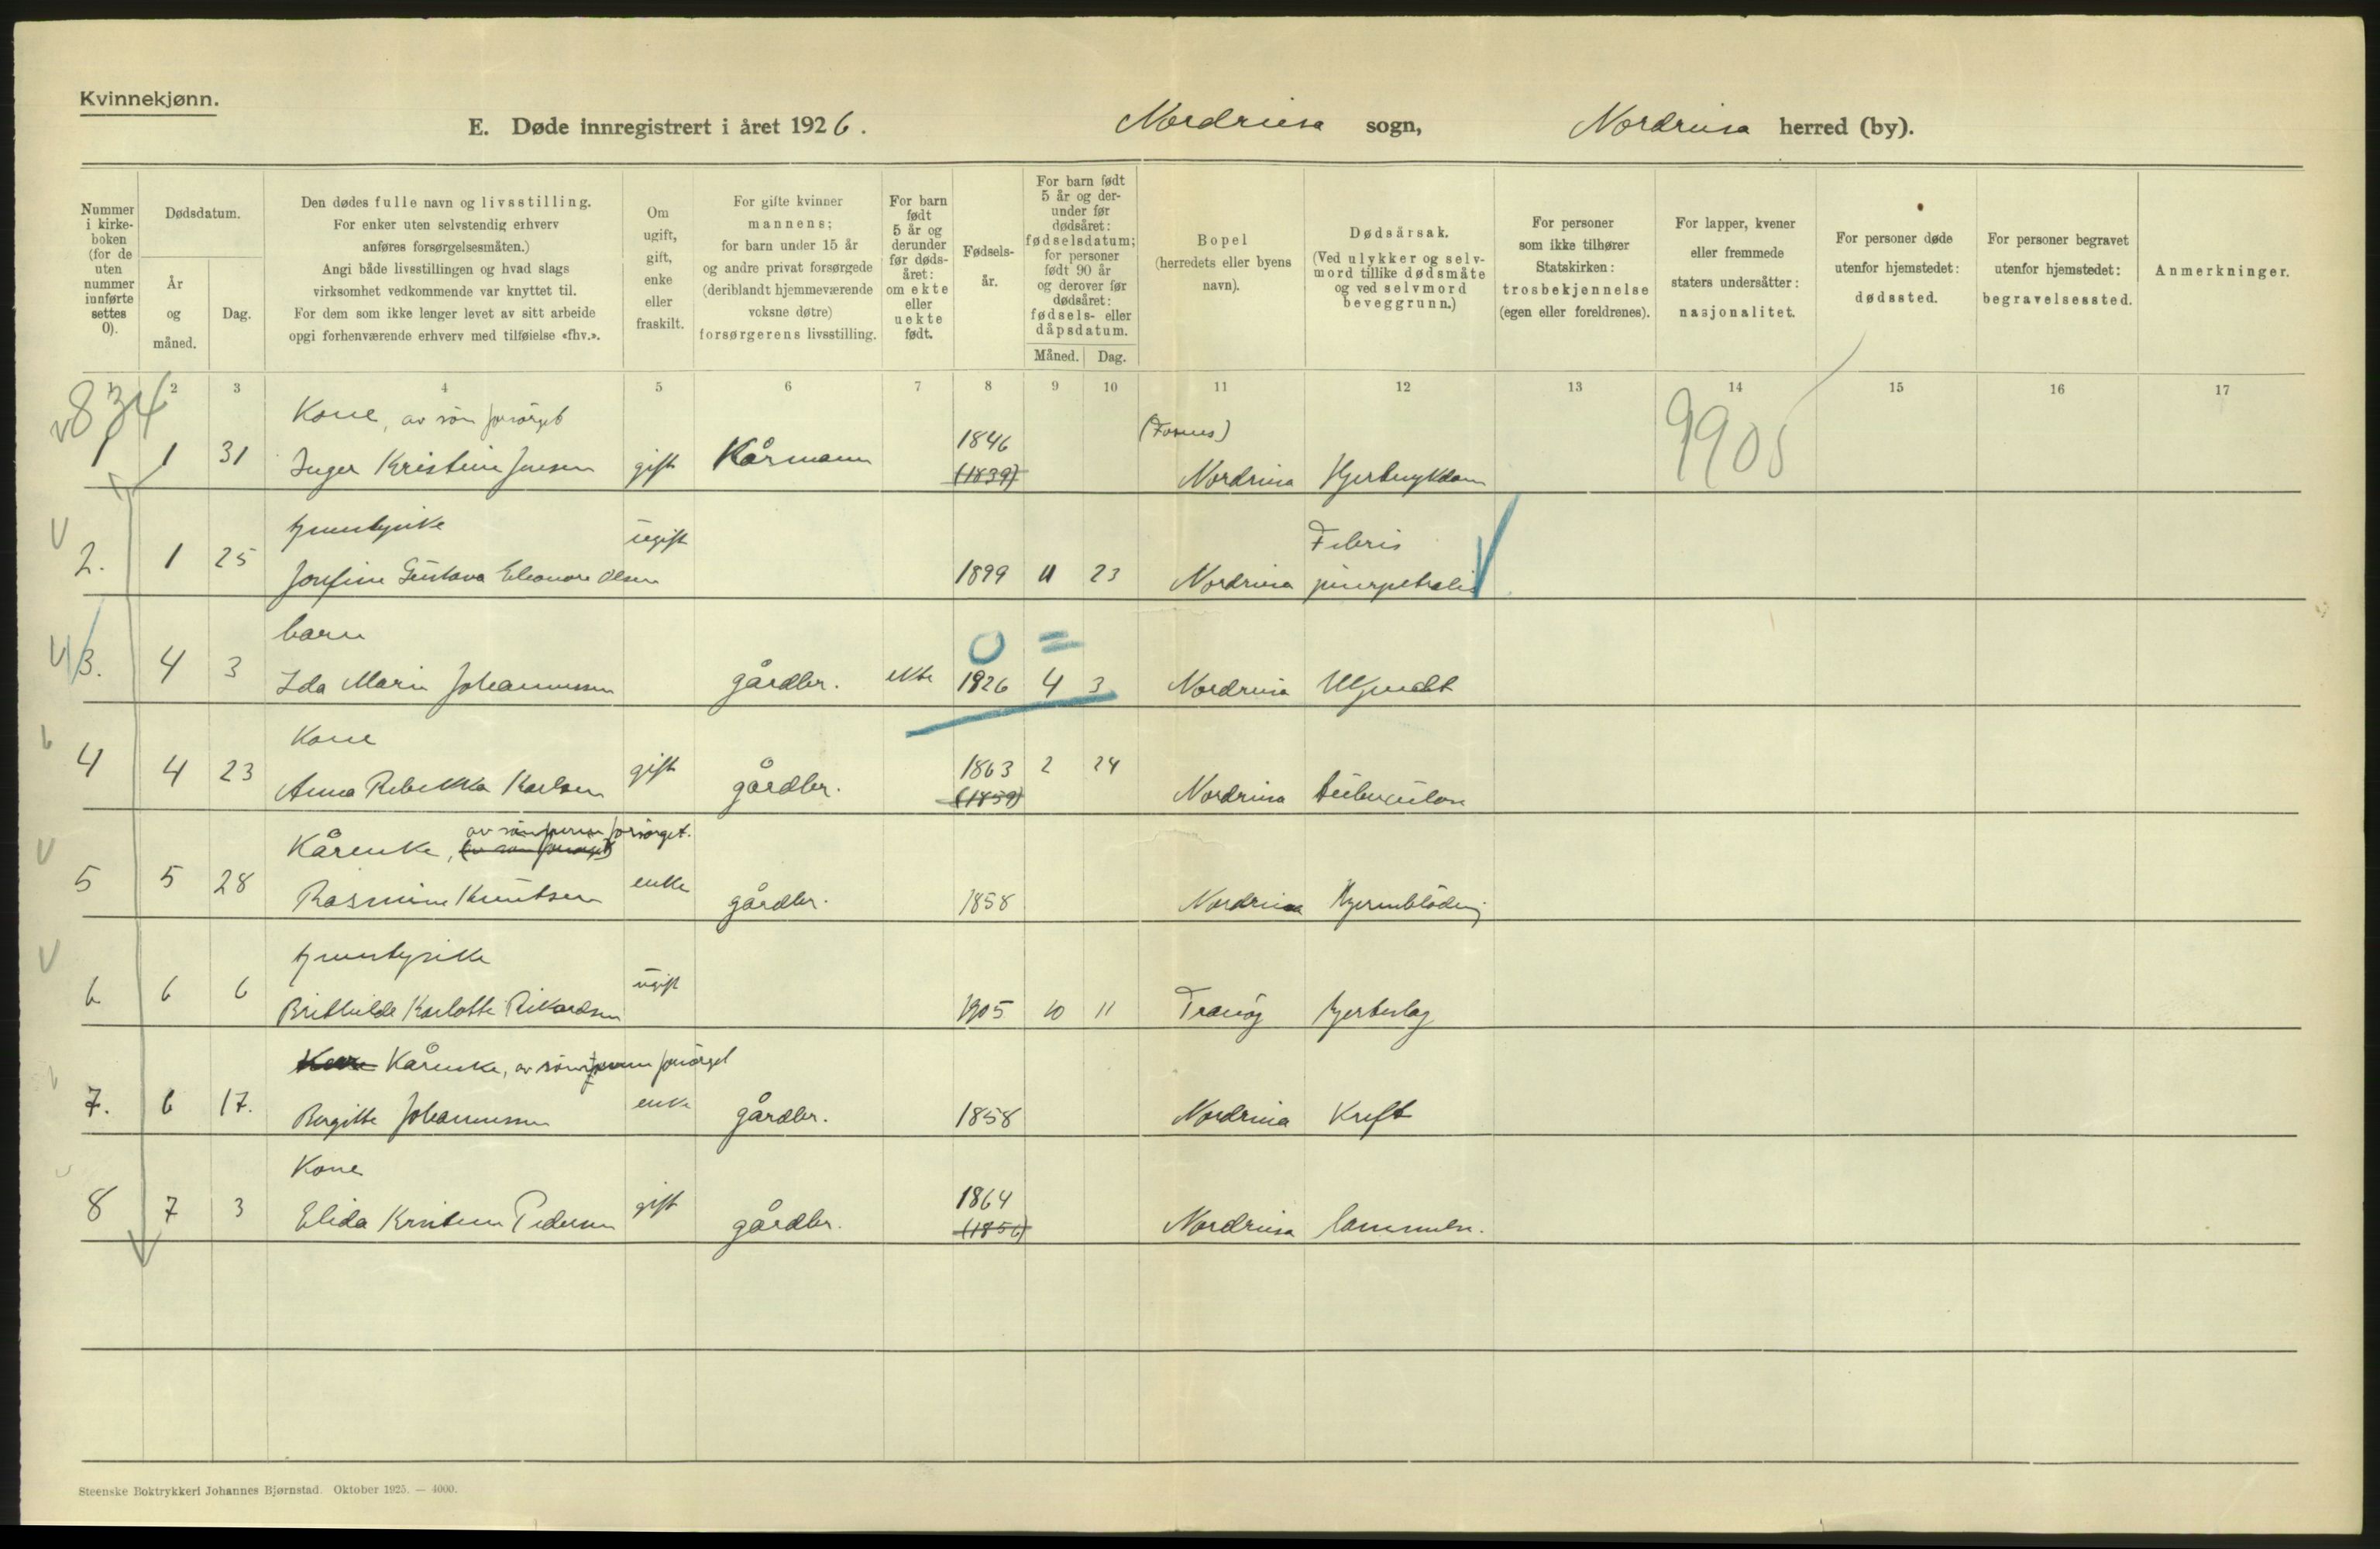 Kvinnekjønn.
E. Døde innregistrert i året 1926. Nordreisa sogn, Nordreisa herred (by).
Nummer i kirkeboken (for de uten nummer innførte settes 0).
Dødsdatum.
År og måned.
Dag.
Den dødes fulle navn og livsstilling.
For enker uten selvstendig erhverv
anføres forsørgelsesmåten.)
Angi både livsstillingen og hvad slags
virksomhet vedkommende var knyttet til.
For dem som ikke lenger levet av sitt arbeide
opgi forhenværende erhverv med tilføielse «fhv.».
Om
ugift,
gift,
enke
eller
fraskilt.
For gifte kvinner
mannens;
for barn under 15 år
og andre privat forsørgede
(deriblandt hjemmeværende
voksne døtre)
forsørgerens livsstilling.
For barn
født
5 år og
derunder
før døds-
året:
om ekte
eller
uekte
født.
Fødsels-
år.
For barn født
5 år og der-
under før
dødsåret:
fødselsdatum;
for personer
født 90 år
og derover før
dødsåret:
fødsels- eller
dåpsdatum.
Måned. Dag.
Bopel
(herredets eller byens
navn).
Dødsårsak.
(Ved ulykker og selv-
mord tillike dødsmåte
og ved selvmord
beveggrunn.)
For personer
som ikke tilhører
Statskirken:
trosbekjennelse
(egen eller foreldrenes).
For lapper, kvener
eller fremmede
staters undersåtter:
nasjonalitet.
For personer døde
utenfor hjemstedet:
dødssted.
For personer begravet
utenfor hjemstedet:
begravelsessted.
Anmerkninger.
1 2 3 4 5 6 7 8 9 10 11 12 13 14 15 16 17
834
9905
Kone, av søn forsörget
1846
1 1 31 Inger Kristine Jensen gift Kårmann (1839) Nordreisa Hjertesykdom
ugift
Febris
2. 1 25 Josefine Gustava Eleonore Olsen 1899 11 23 Nordreisa puerpetralis
barn
0 =
3. 4 3 Ida Marie Johannessen gårdbr. ekte 1926 4 3 Nordreisa
Kone
4 4 23 Anna Rebekka Karlsen gift gårdbr. 1863 2 24 Nordreisa Tuberculose
(1859)
Kårenke, forsörget.
5 5 28 Rasmine Knutsen enke gårdbr. 1858 Nordreisa Hjerneblödning
6 6 6 Brithilde Karlotte Rikardsen ugift 1905 10 11 Tranöy Hjerteslag
Kone Kårenke, av forsörget
7. 6 17. Bergitte Johannessen enke gårdbr. 1858 Nordreisa Kreft
Kone
1864
8 7 3 Elida Kristine Pedersen gift gårdbr. (1856) Nordreisa lammelse.
Steenske Boktrykkeri Johannes Bjørnstad. Oktober 1925. — 4000.